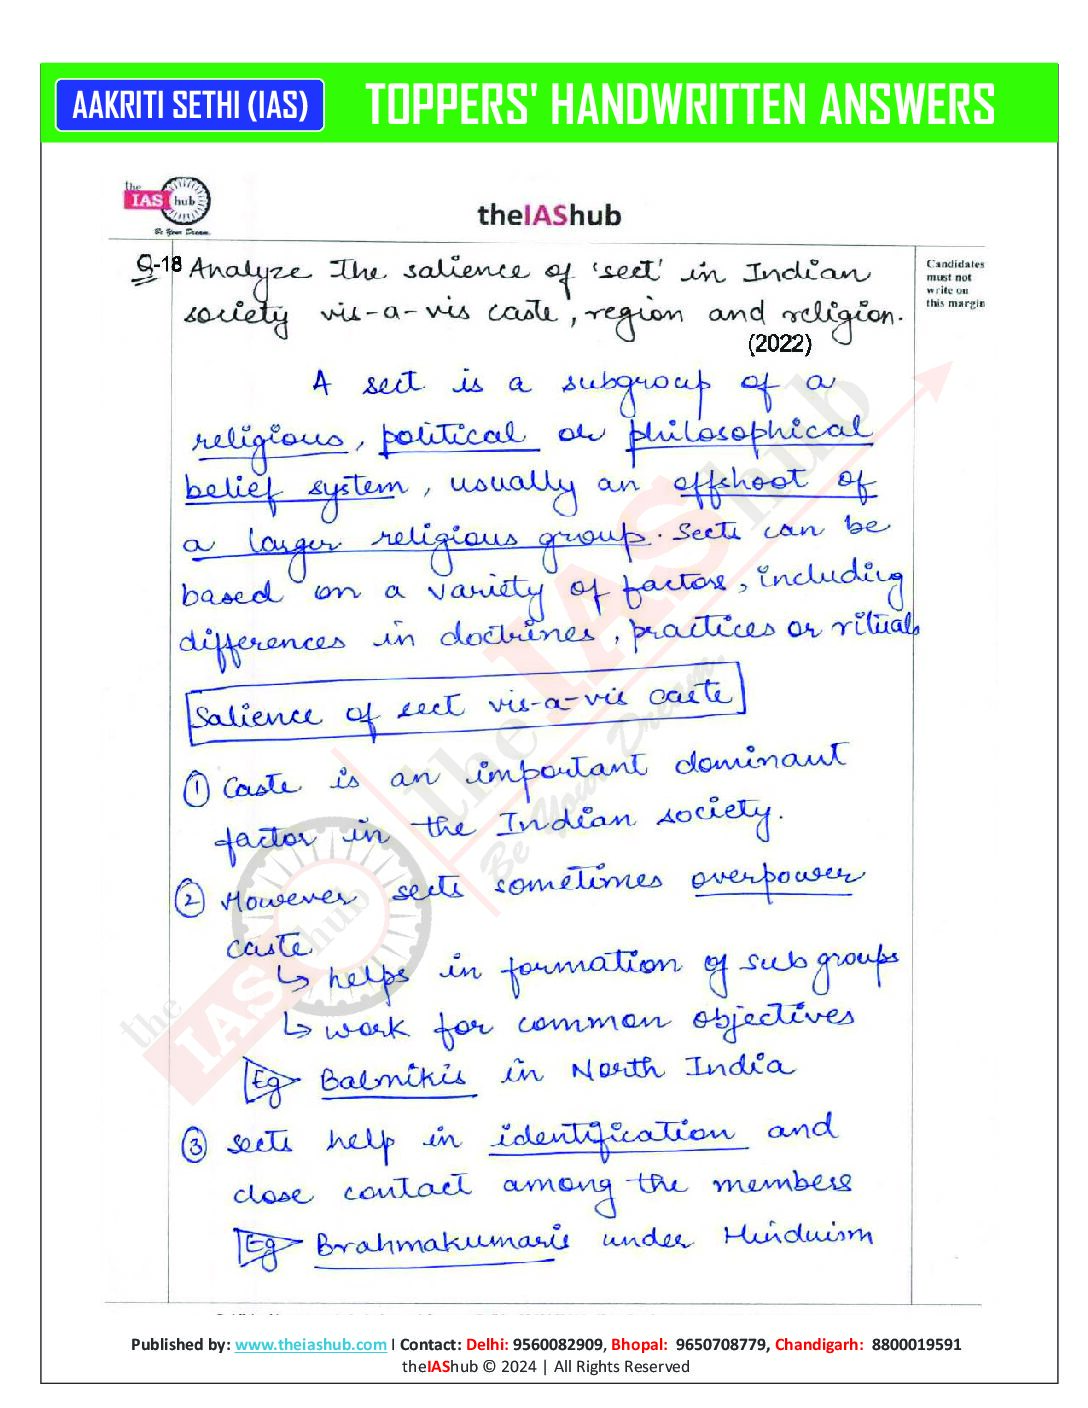 AAKRITI SETHI (IAS) TOPPERS' HANDWRITTEN ANSWERS
the IAS hub
Be Your Dream.
theIAShub
Q-18 Analyze The salience of 'sect' in Indian
society vis-a-vis caste, region and religion.
(2022)
Candidates
must not
write on
this margin
A sect is a subgroup of a
religious, political or philosophical
belief system, usually an offshoot of
a larger religious group. Sects can be
based on a variety of factors, including
differences in doctrines, practices or rituals
Salience of sect vis-a-vis caste
① Caste is an important dominant
factor in the Indian society.
② However sects sometimes overpower
caste
↳ helps in formation of sub groups
↳ work for common objectives
Eg Balmikis in North India
③ Sects help in identification and
close contact among the members
Eg Brahmakumaris under Hinduism
the IAS hub
Be Your Dream
Published by: www.theiashub.com I Contact: Delhi: 9560082909, Bhopal: 9650708779, Chandigarh: 8800019591
theIAShub © 2024 | All Rights Reserved